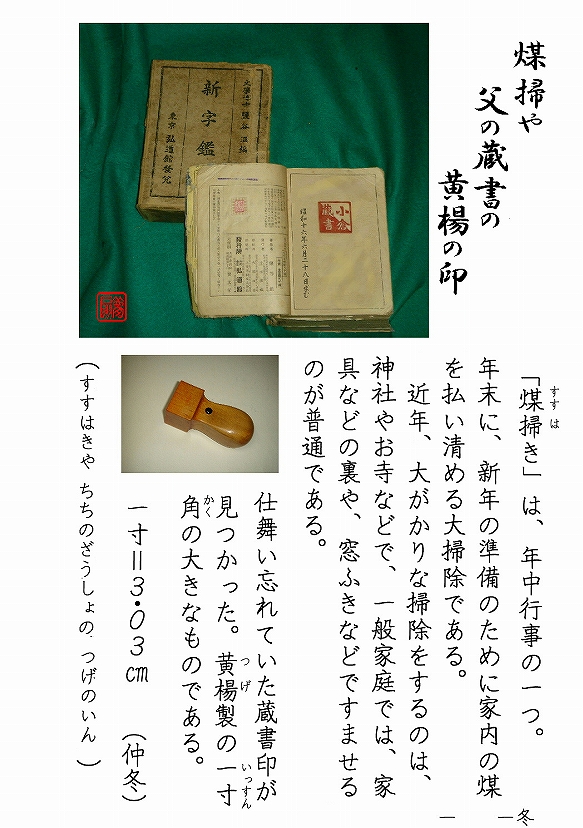 煤掃や
父の蔵書の
黄楊の印
文學博士 鹽谷 温編
新字鑑
東京 弘道館發兌
小倉
蔵書
昭和十六年六月二十八日
弘道館
「煤掃き」は、年中行事の一つ。
すす は
年末に、新年の準備のために家内の煤
を払い清める大掃除である。
近年、大がかりな掃除をするのは、
神社やお寺などで、一般家庭では、家
具などの裏や、窓ふきなどですませる
のが普通である。
仕舞い忘れていた蔵書印が
見つかった。黄楊製の一寸
つげ
いっすん
角の大きなものである。
かく
一寸=3・03cm
(仲冬)
(すすはきや ちちのざうしょの つげのいん)
冬
一 一